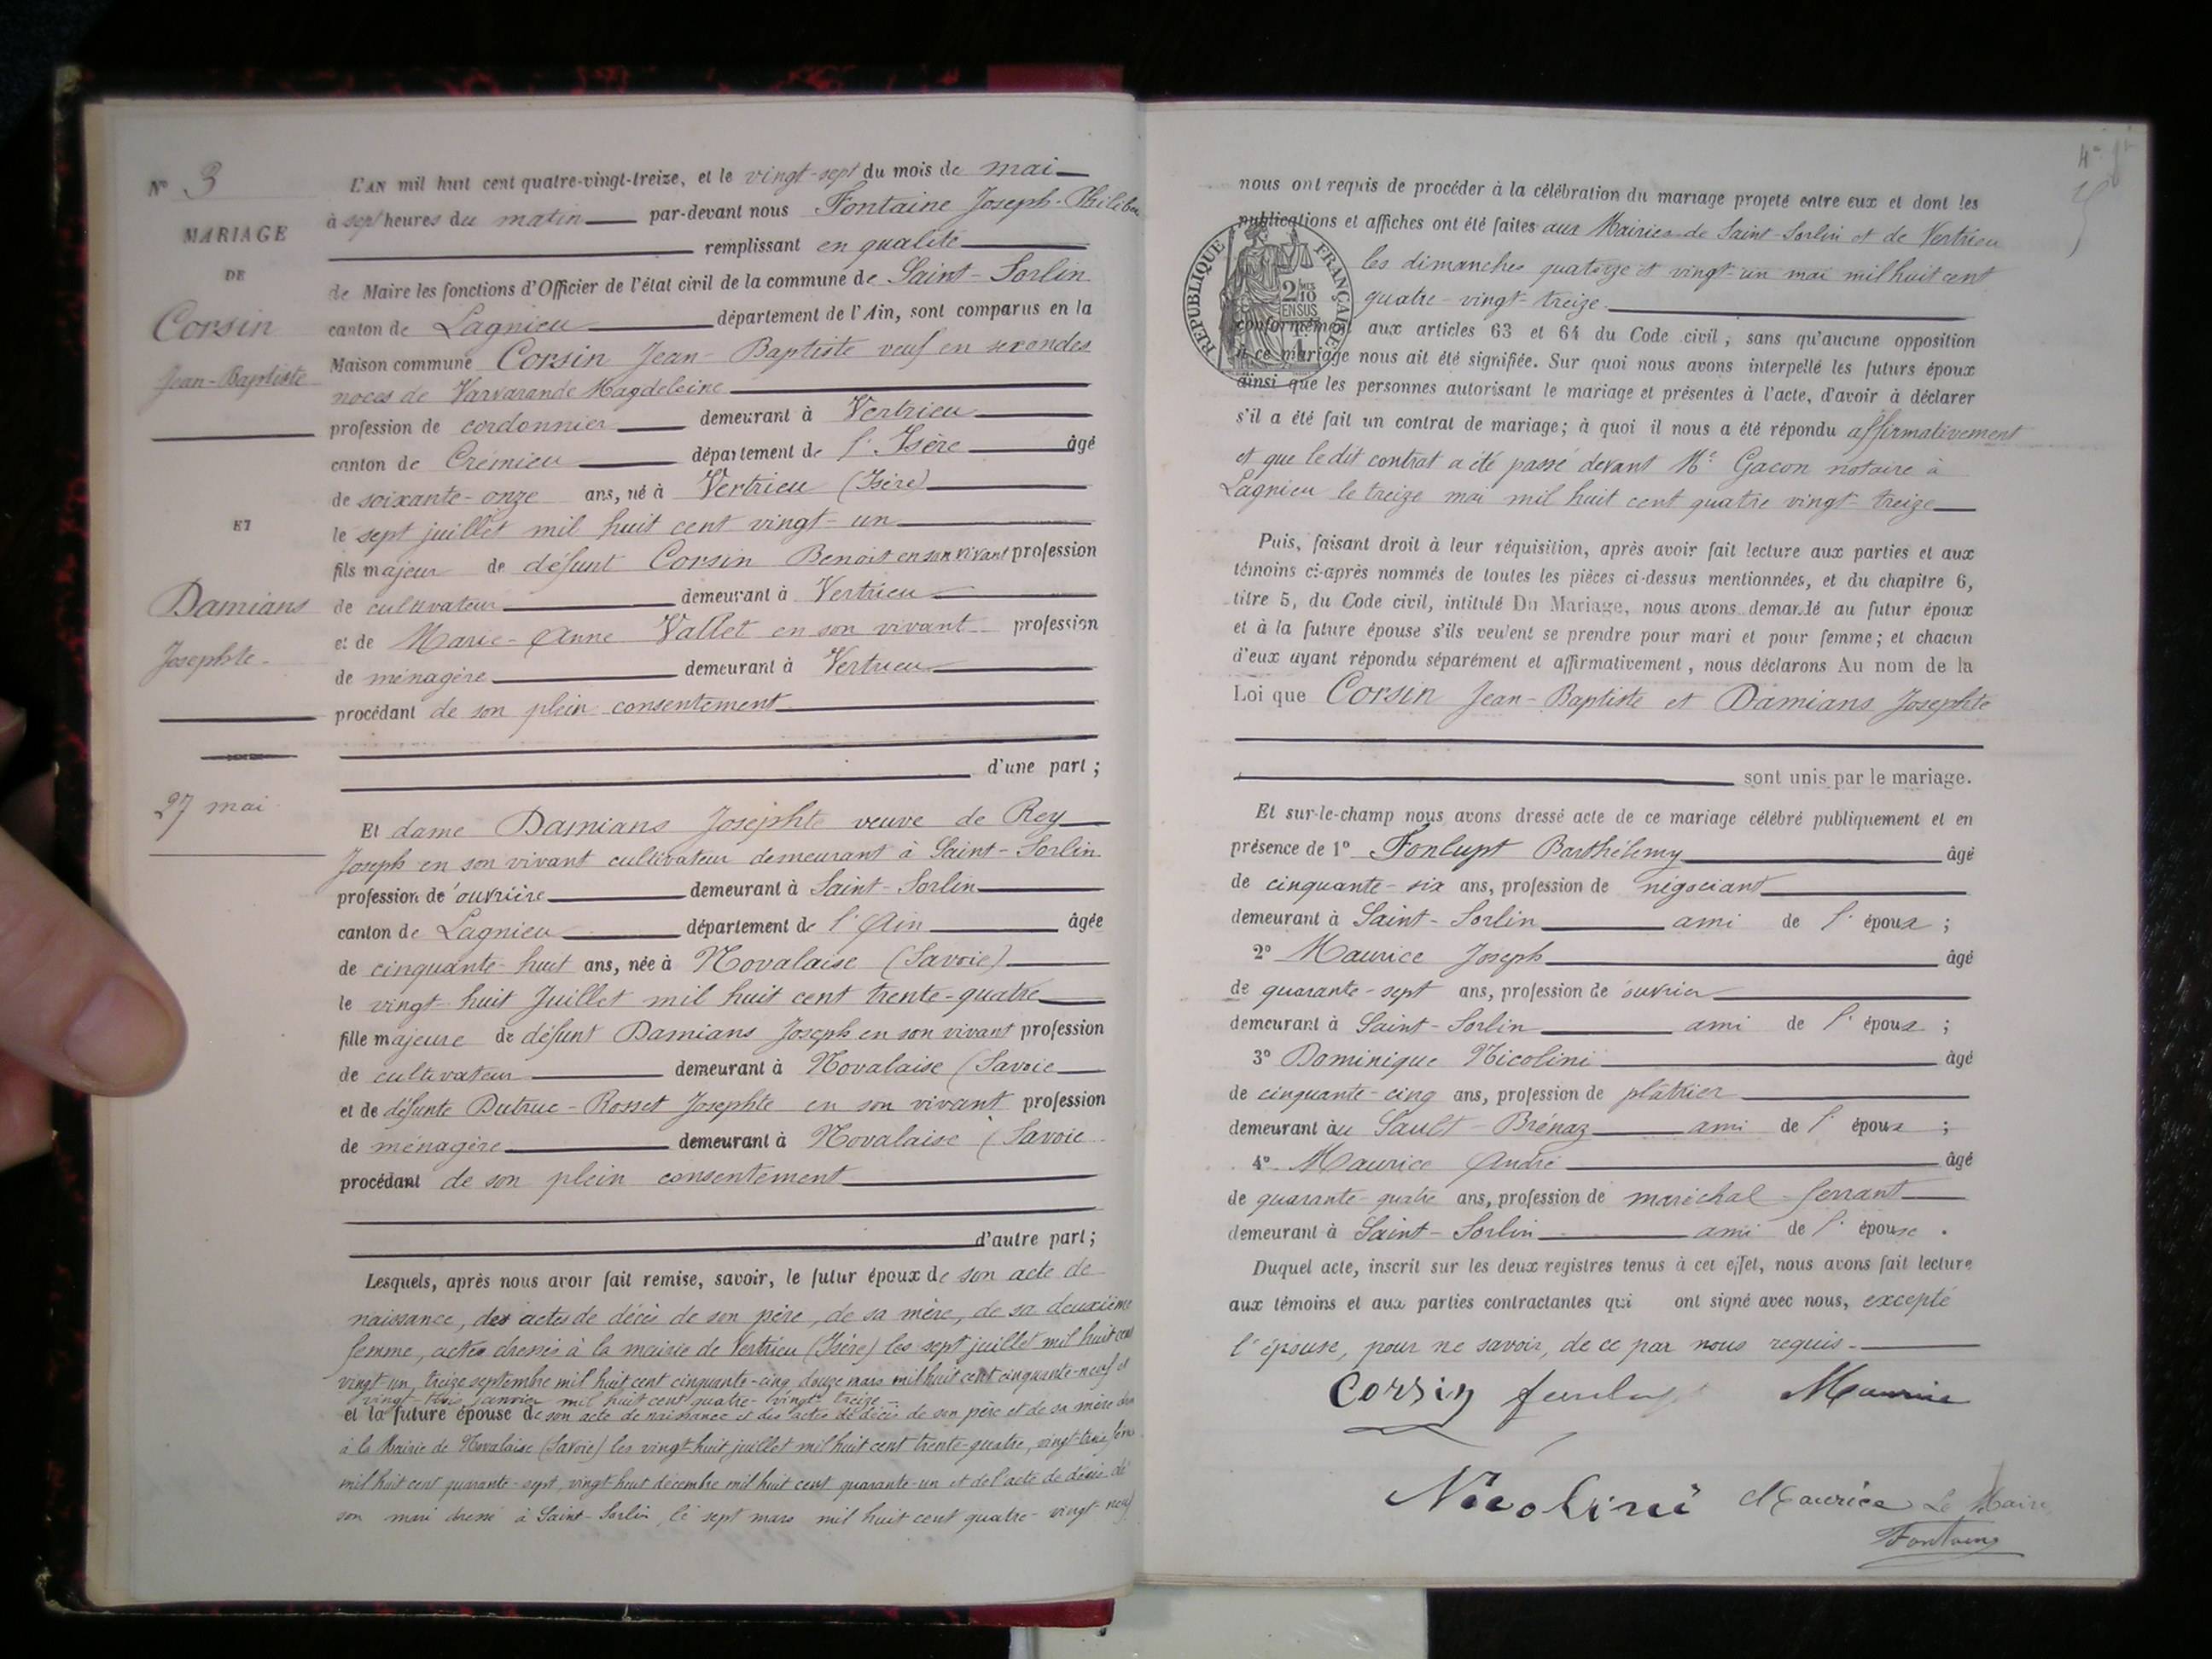 N° 3
MARIAGE
DE
Corsin
Jean-Baptiste
ET
Damians
Josephte
27 mai
L'AN mil huit cent quatre-vingt-treize, et le vingt-sept du mois de mai
à sept heures du matin par-devant nous Fontaine Joseph-
remplissant en qualité
de Maire les fonctions d'Officier de l'état civil de la commune de Saint-Sorlin
canton de Lagnieu département de l'Ain, sont comparus en la
Maison commune Corsin Jean-Baptiste veuf en secondes
noces de Varvarande Magdeleine
profession de cordonnier demeurant à Vertrieu
canton de Crémieu département de l'Isère âgé
de soixante-onze ans, né à Vertrieu (Isère)
le sept juillet mil huit cent vingt-un
fils majeur de défunt Corsin Benoit en son vivant profession
de cultivateur demeurant à Vertrieu
et de Marie-Anne Vallet en son vivant profession
de ménagère demeurant à Vertrieu
procédant de son plein consentement
d'une part ;
Et dame Damians Josephte veuve de Rey
Joseph en son vivant cultivateur demeurant à Saint-Sorlin
profession de ouvrière demeurant à Saint-Sorlin
canton de Lagnieu département de l'Ain âgée
de cinquante-huit ans, née à Novalaise (Savoie)
le vingt-huit Juillet mil huit cent trente-quatre
fille majeure de défunt Damians Joseph en son vivant profession
de cultivateur demeurant à Novalaise (Savoie
et de défunte Dutruc-Rosset Josephte en son vivant profession
de ménagère demeurant à Novalaise (Savoie
procédant de son plein consentement
d'autre part ;
Lesquels, après nous avoir fait remise, savoir, le futur époux de son acte de
naissance, des actes de décès de son père, de sa mère, de sa deuxième
femme, actes dressés à la mairie de Vertrieu (Isère) les sept juillet mil huit cent
vingt-un, treize septembre mil huit cent cinquante-cinq douze mars mil huit cent cinquante-neuf et
vingt-trois janvier mil huit cent quatre-vingt-treize
et la future épouse de son acte de naissance et des actes de décès de son père et de sa mère
à la Mairie de Novalaise (Savoie) les vingt-huit juillet mil huit cent trente-quatre, vingt-trois
mil huit cent quarante-sept, vingt-huit décembre mil huit cent quarante-un et de l'acte de décès de
son mari dressé à Saint-Sorlin, le sept mars mil huit cent quatre-vingt-neuf
nous ont requis de procéder à la célébration du mariage projeté entre eux et dont les
publications et affiches ont été faites aux Mairies de Saint-Sorlin et de Vertrieu
les dimanches quatorze et vingt-un mai mil huit cent
quatre-vingt-treize
conformément aux articles 63 et 64 du Code civil, sans qu'aucune opposition
à ce mariage nous ait été signifiée. Sur quoi nous avons interpellé les futurs époux
ainsi que les personnes autorisant le mariage et présentes à l'acte, d'avoir à déclarer
s'il a été fait un contrat de mariage; à quoi il nous a été répondu affirmativement
et que le dit contrat a été passé devant Me Gacon notaire à
Lagnieu le treize mai mil huit cent quatre vingt-treize
REPUBLIQUE FRANÇAISE
2/10
EN SUS
Puis, faisant droit à leur réquisition, après avoir fait lecture aux parties et aux
témoins ci-après nommés de toutes les pièces ci-dessus mentionnées, et du chapitre 6,
titre 5, du Code civil, intitulé Du Mariage, nous avons demandé au futur époux
et à la future épouse s'ils veulent se prendre pour mari et pour femme; et chacun
d'eux ayant répondu séparément et affirmativement, nous déclarons Au nom de la
Loi que Corsin Jean-Baptiste et Damians Josephte
sont unis par le mariage.
Et sur-le-champ nous avons dressé acte de ce mariage célébré publiquement et en
présence de 1° Fonlupt Barthélemy âgé
de cinquante-six ans, profession de négociant
demeurant à Saint-Sorlin ami de l'époux ;
2° Maurice Joseph âgé
de quarante-sept ans, profession de ouvrier
demeurant à Saint-Sorlin ami de l'époux ;
3° Dominique Nicolini âgé
de cinquante-cinq ans, profession de plâtrier
demeurant au Sault-Brénaz ami de l'époux ;
4° Maurice André âgé
de quarante-quatre ans, profession de maréchal-ferrant
demeurant à Saint-Sorlin ami de l'épouse .
Duquel acte, inscrit sur les deux registres tenus à cet effet, nous avons fait lecture
aux témoins et aux parties contractantes qui ont signé avec nous, excepté
l'épouse, pour ne savoir, de ce par nous requis.
Corsin Maurice
Nicolini Maurice Le Maire
Fontaine